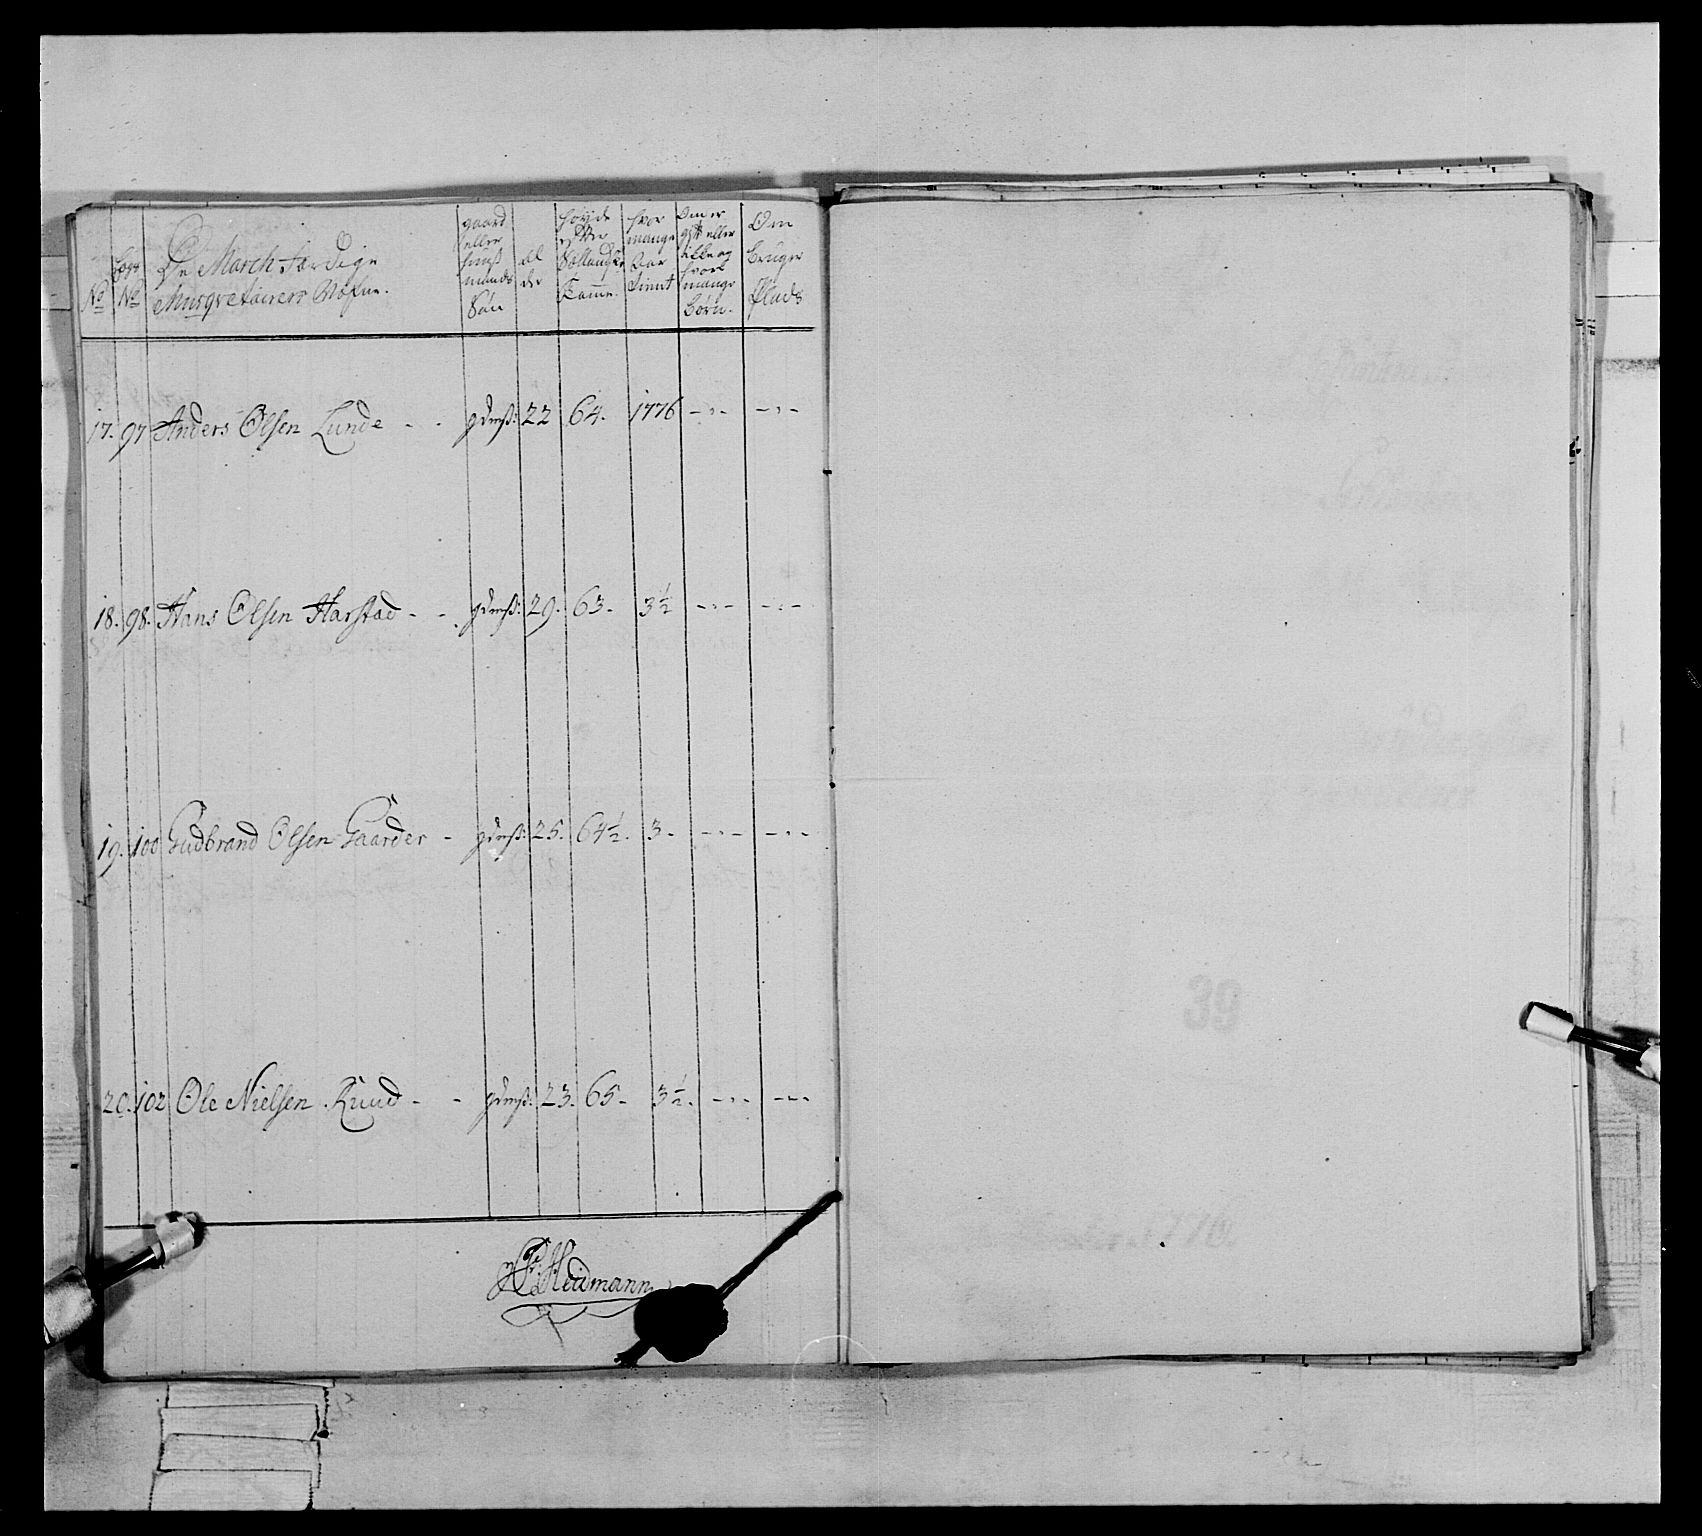 No | Lægs No | De March færdige Musqvetairers Nafne. | gaard eller huus mands Søn | Al der | høyde efter Sællandske Tomme. | hvor mange Aar tient | Om er gift eller ikke og hvor mange Børn. | Om bruger Plads
17. 97 Anders Olsen Lunde - - gdmß: 22 64. 1776 -"- -"-
18. 98. Hans Olsen Harstad - - gdmß: 29. 63. 3½ -"- -"-
19. 100 Gudbrand Olsen Gaarder - gdmß: 25. 64½. 3. -"- -"-
20. 102 Ole Nielsen Ruud - - gdmß. 23. 65. 3½. -"- -"-
Heidmann
39
1776.